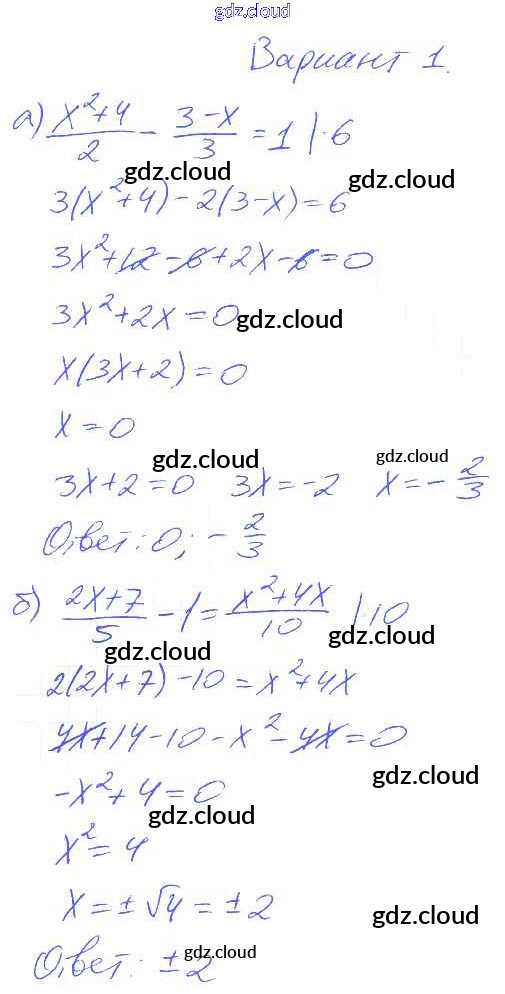 gdz.cloud
gdz.cloud
Вариант 1.
а) (x²+4)/2 - (3-x)/3 = 1 |·6
gdz.cloud
gdz.cloud
3(x²+4)-2(3-x)=6
3x²+12-6+2x-6=0
3x²+2x=0
gdz.cloud
x(3x+2)=0
x=0
gdz.cloud
gdz.cloud
3x+2=0 3x=-2 x=-2/3
Ответ: 0; -2/3
б) (2x+7)/5 -1= (x²+4x)/10 |·10
gdz.cloud
gdz.cloud
2(2x+7)-10=x²+4x
4x+14-10-x²-4x=0
gdz.cloud
-x²+4=0
gdz.cloud
x²=4
x=±√4=±2
gdz.cloud
gdz.cloud
Ответ: ±2